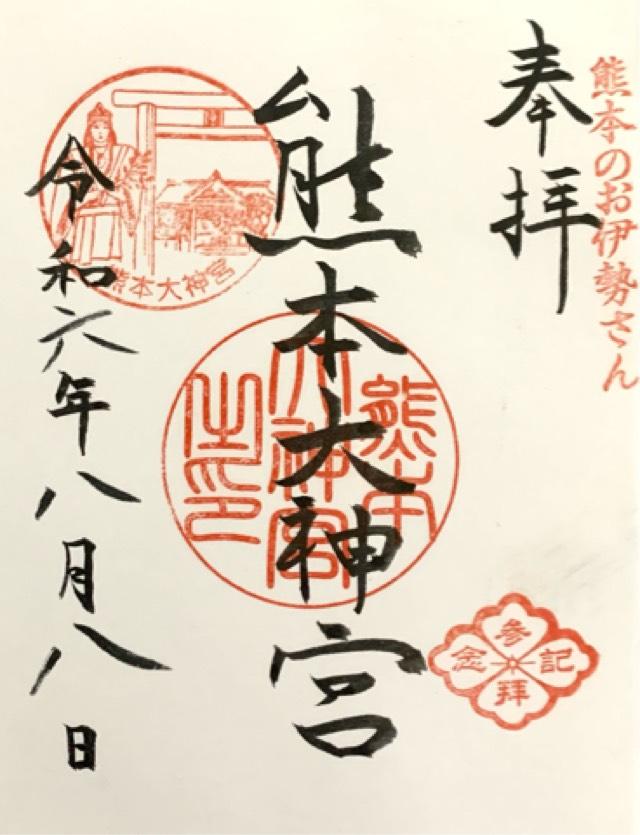 熊本のお伊勢さん
奉拝
熊本大神宮
熊本
大神宮
之印
参拝
記念
熊本大神宮
令和六年八月八日